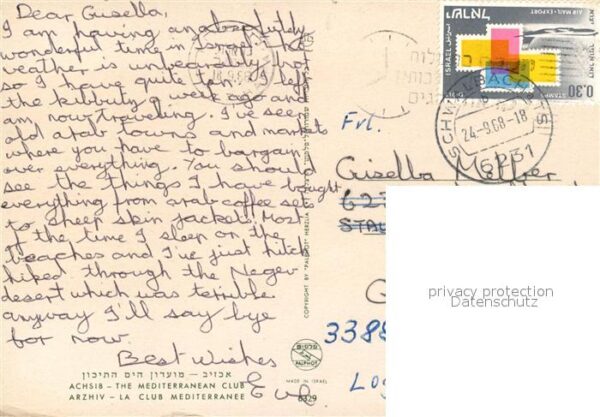 Dear Gisella,
I am having an absolutely
wonderful time in Israel. The
weather is unbearibly hot
so I have quite a tan. I left
the kibbutz a week ago and
am now traveling. I've seen
old arab towns and markets
where you have to bargain
over everything. You should
see the things I have bought
everything from arab coffee set
to sheep skin jackets. Most
of the time I sleep on the
beaches and I've just hitch
hiked through the Negev
desert which was terrible
anyway I'll say bye
for now.
Best Wishes
אכזיב – מועדון הים התיכון
ACHSIB – THE MEDITERRANEAN CLUB
ARZHIV – LA CLUB MEDITERRANEE
COPYRIGHT BY "PALPHOT" HERZLIA
פלפוט
PALPHOT
MADE IN ISRAEL
8329
18.9.68
ישראל
ISRAEL
AIR MAIL-EXPORT
0.30
SCHWALBACH
24-9.68-18
6231
Frl.
Gisella
3388
privacy protection
Datenschutz